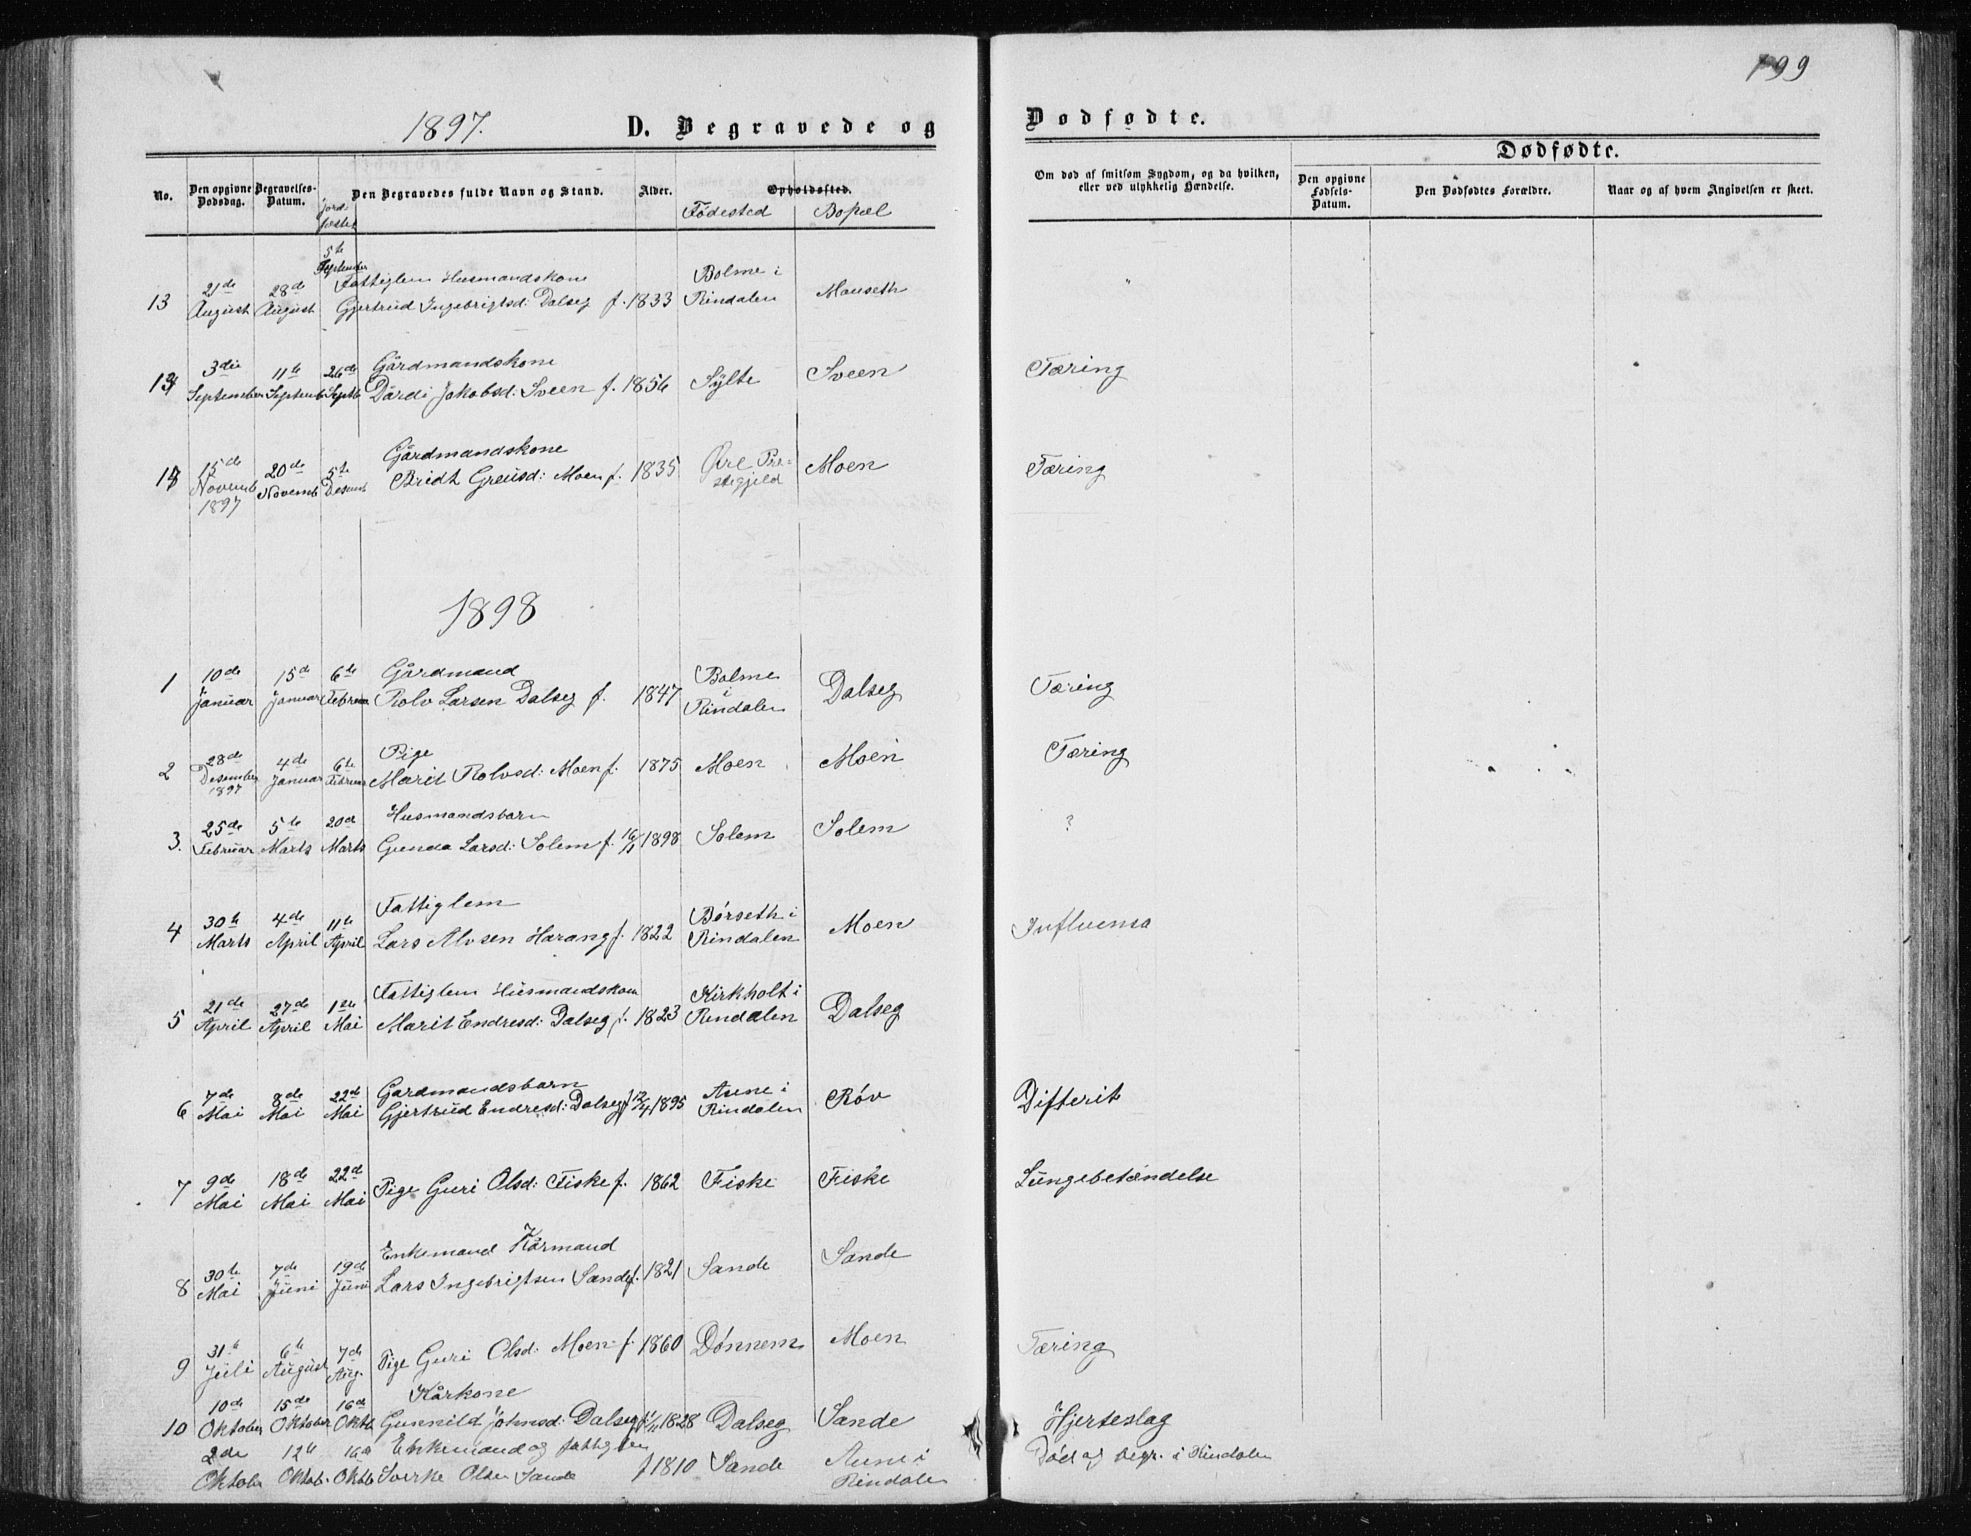 199
1897.
D. Begravede og
Dødfødte.
No.
Den opgivne Dødsdag.
Begravelses-Datum.
jordfæstet
Den Begravedes fulde Navn og Stand.
Alder.
Opholdssted.
Fødested
Bopæl
Om død af smitsom Sygdom, og da hvilken, eller ved ulykkelig Hændelse.
Dødfødte.
Den opgivne Fødsels-Datum.
Den Dødfødtes Forældre.
Naar og af hvem Angivelsen er skeet.
5te September
Fattiglem Husmandskone
Bolme i
13 21de August 28de August Gjertrud Ingebrigtsd: Dalseg f. 1833 Rindalen Mauseth
Gårdmandskone
3die September 11te Septemb 26de Septb Dårdi Jakobsd: Sveen f. 1856 Sylte Sveen Tæring
Gårdmandskone
15de Novemb 1897 20de Novemb 5te Desemb Bridt Greusd: Moen f. 1835 Øre Prestegjeld Moen Tæring
1898
Gårdmand
1 10de Januar 15de Januar 6te Februar Rolv Larsen Dalseg f. 1847 Bolme i Rindalen Dalseg Tæring
Pige
2 28de Desember 1897 4de Januar 6te Februar Marit Rolvsd: Moen f. 1875 Moen Moen Tæring
Husmandsbarn
3. 25de Februar 5te Marts 20de Marts Gunda Larsd: Solem f. 16/1 1898 Solem Solem ?
Fattiglem
4 30te Marts 4de April 11te April Lars Alvsen Harang f. 1822 Børseth i Rindalen Moen Influensa
Fattiglem Husmandskone
5 21de April 27de April 1ste Mai Marit Endresd: Dalseg f. 1823 Kirkholt i Rindalen Dalseg
Gårdmandsbarn
6 7de Mai 8de Mai 22de Mai Gjertrud Endresd: Dalseg f 12/4 1895 Aune i Rindalen Røv Difterit
7 9de Mai 18de Mai 22de Mai Pige Guri Olsd: Fiske f. 1862 Fiske Fiske Lungebetændelse
Enkemand Kårmand
8 30te Mai 7de Juni 19de Juni Lars Ingebrigtsen Sande f. 1821 Sande Sande
9 31te Juli 6te August 7de Aug. Pige Guri Olsd: Moen f. 1860 Dønnem Moen Tæring
Kårkone
10 10de Oktober 15de Oktober 16de Oktb Gunnild Johnsd: Dalseg 1828 Dalseg Sande Hjerteslag
Enkemand og fattiglem
2de Oktober 12te Oktob. 16de Oktb Sverke Olsen Sande f 1810 Sande Aune i Rindalen Død og begr. i Rindalen